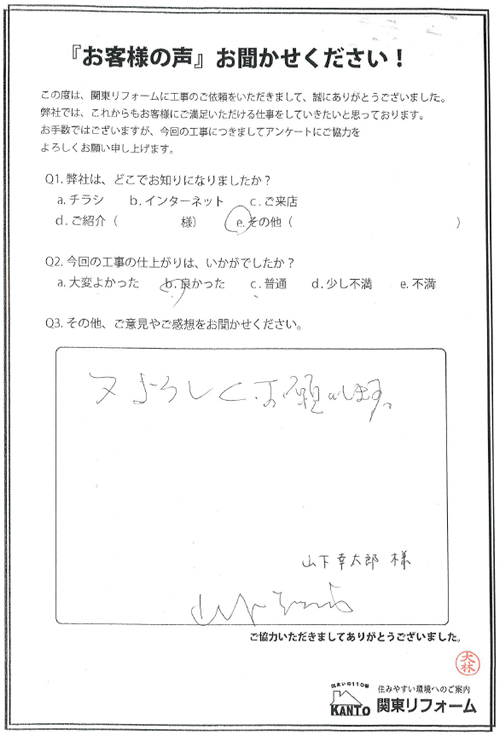 『お客様の声』お聞かせください！
この度は、関東リフォームに工事のご依頼をいただきまして、誠にありがとうございました。
弊社では、これからもお客様にご満足いただける仕事をしていきたいと思っております。
お手数ではございますが、今回の工事につきましてアンケートにご協力を
よろしくお願い申し上げます。
Q1. 弊社は、どこでお知りになりましたか？
a. チラシ　b. インターネット　c. ご来店
d. ご紹介（　　　　様）　e. その他（　　　　　　　　）
Q2. 今回の工事の仕上がりは、いかがでしたか？
a. 大変よかった　b. 良かった　c. 普通　d. 少し不満　e. 不満
Q3. その他、ご意見やご感想をお聞かせください。
又よろしくお願いします。
山下幸太郎 様
ご協力いただきましてありがとうございました。
大林
住まいの110番
住みやすい環境へのご案内
KANTO 関東リフォーム